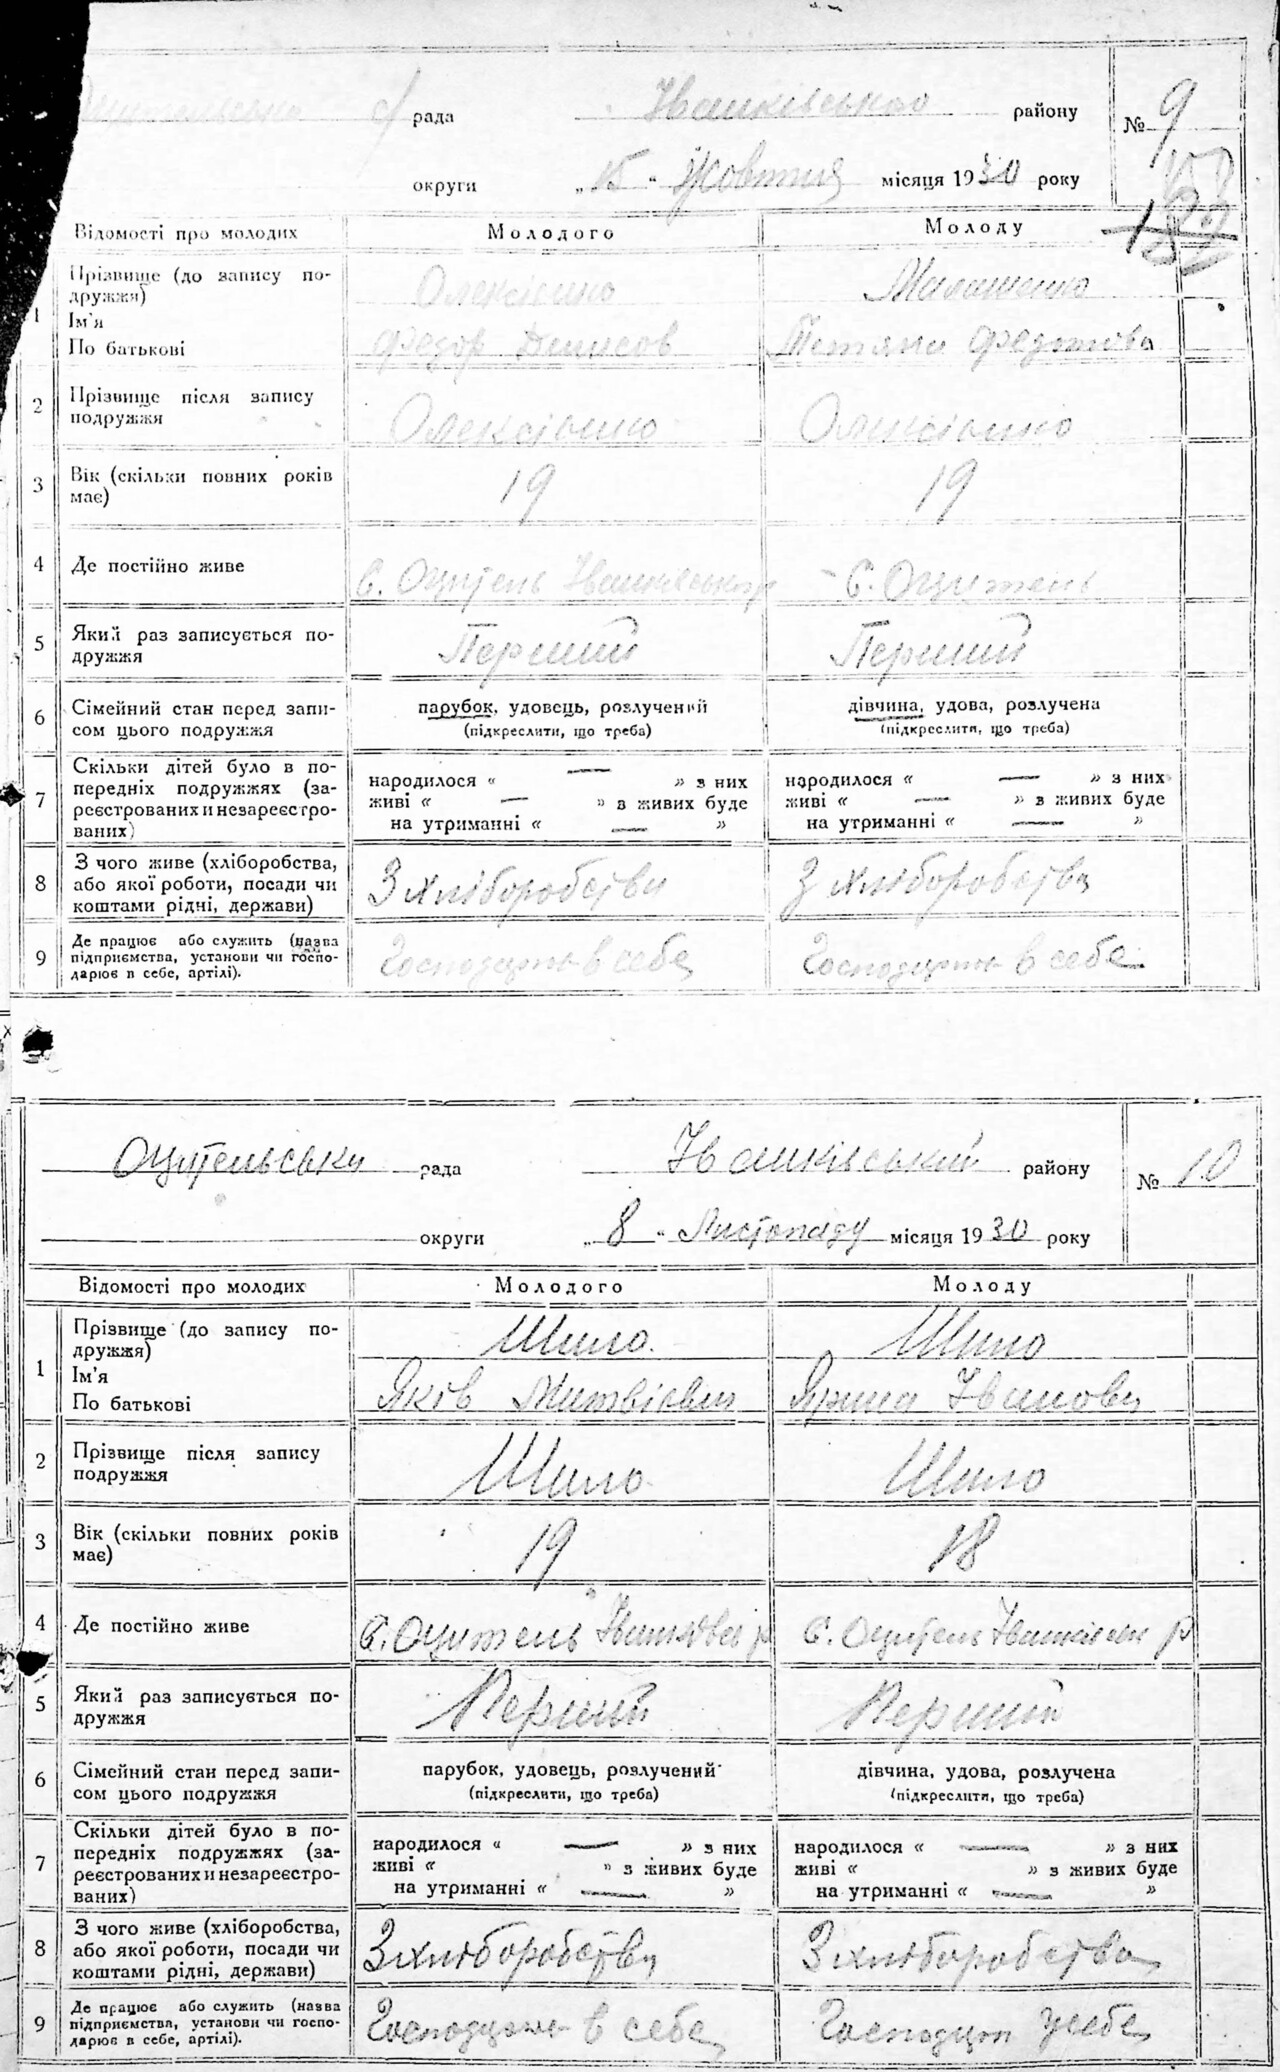 с/рада Іванківського району № 9
округи „15“ Жовтня місяця 1930 року
Відомості про молодих Молодого Молоду
1 Прізвище (до запису по- Олексієнко Малашенко
дружжя)
Ім'я
По батькові Федор Денисов Тетяна Федотова
2 Прізвище після запису
подружжя Олексієнко Олексієнко
3 Вік (скільки повних років
має) 19 19
4 Де постійно живе с. Оцитель Іванківськ р с. Оцитель
5 Який раз записується по-
дружжя Перший Перший
6 Сімейний стан перед запи- парубок, удовець, розлучений дівчина, удова, розлучена
сом цього подружжя (підкреслити, що треба) (підкреслити, що треба)
7 Скільки дітей було в по-
передніх подружжях (за- народилося « — » з них народилося « — » з них
реєстрованих и незареєстро- живі « — » з живих буде живі « — » з живих буде
ваних) на утриманні « — » на утриманні « — »
8 З чого живе (хліборобства,
або якої роботи, посади чи З хліборобства З хліборобства
коштами рідні, держави)
9 Де працює або служить (назва
підприємства, установи чи госпо- Господарює в себе Господарює в себе
дарює в себе, артілі).
Оцительська рада Іванківський району № 10
округи „8“ Листопаду місяця 1930 року
Відомості про молодих Молодого Молоду
1 Прізвище (до запису по- Шило Шило
дружжя)
Ім'я
По батькові Яків Матвієвич Ярина Іванова
2 Прізвище після запису
подружжя Шило Шило
3 Вік (скільки повних років
має) 19 18
4 Де постійно живе с. Оцитель р с. Оцитель р
5 Який раз записується по-
дружжя Перший Перший
6 Сімейний стан перед запи- парубок, удовець, розлучений дівчина, удова, розлучена
сом цього подружжя (підкреслити, що треба) (підкреслити, що треба)
7 Скільки дітей було в по-
передніх подружжях (за- народилося « — » з них народилося « — » з них
реєстрованих и незареєстро- живі « » з живих буде живі « » з живих буде
ваних) на утриманні « — » на утриманні « — »
8 З чого живе (хліборобства,
або якої роботи, посади чи З хліборобства З хліборобства
коштами рідні, держави)
9 Де працює або служить (назва
підприємства, установи чи госпо- Господарює в себе Господарює в себе
дарює в себе, артілі).